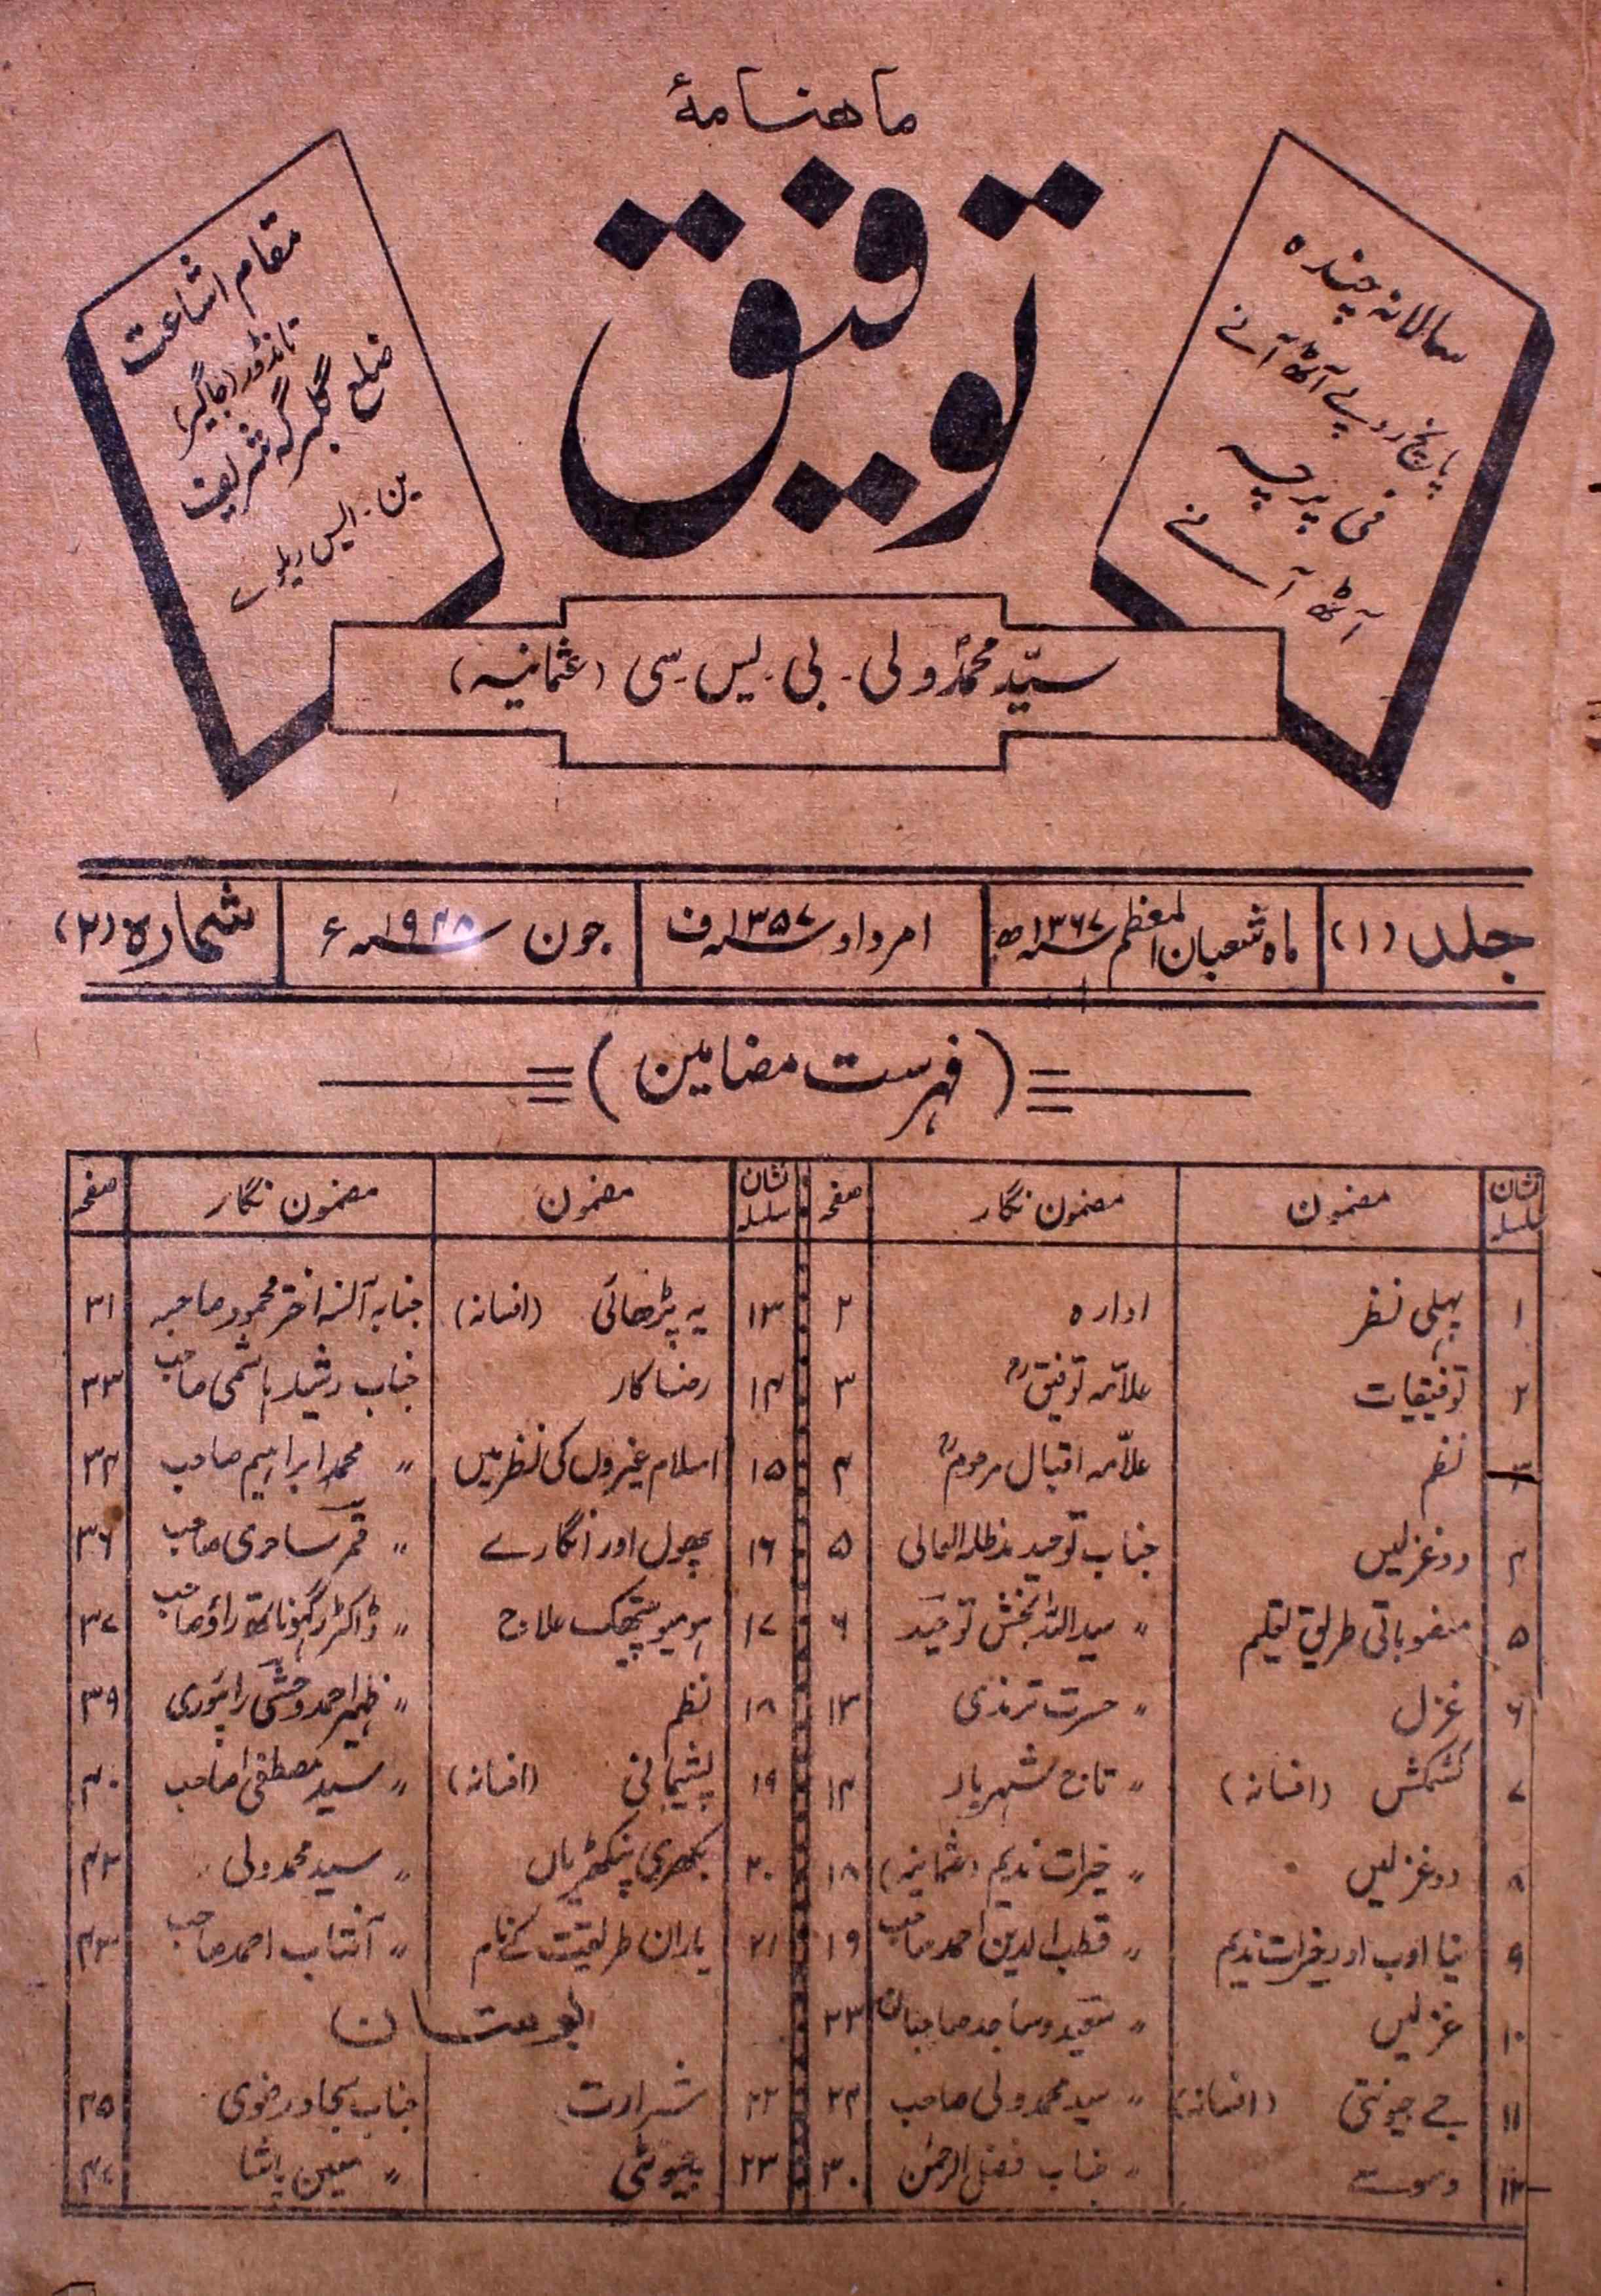 ماہنامۂ
توفیق
سالانہ چندہ
پانچ روپے آٹھ آنے
فی پرچہ
آٹھ آنے
مقام اشاعت
تانڈور (جاگیر)
ضلع گلبرگہ شریف
ین۔ ایس ریلوے
سیّد محمدؐ ولی۔ بی۔ یس۔ سی (عثمانیہ)
جلد (۱) ماہ شعبان المعظم ۱۳۶۷ھ امرداد ۱۳۵۷ف جون ۱۹۴۸ء شمارہ (۲)
(فہرست مضامین)
نشان سلسلہ مضمون مضمون نگار صفحہ
۱ پہلی نظر ادارہ ۲
۲ توفیقیات علامہ توفیقؒ ۳
۳ نظم علامہ اقبال مرحومؒ ۴
۴ دو غزلیں جناب توحید مدظلہ العالی ۵
۵ منصوباتی طریق تعلیم 〃 سید اللہ بخش توحید ۶
۶ غزل 〃 حسرت ترمذی ۱۳
۷ کشمکش (افسانہ) 〃 تاج شہریار ۱۴
۸ دو غزلیں 〃 خیرات ندیم (عثمانیہ) ۱۸
۹ نیا ادب اور خیرات ندیم 〃 قطب الدین احمد صاحب ۱۹
۱۰ غزلیں 〃 سعید و ساجد صاحبان ۲۳
۱۱ جے جیونتی (افسانہ) 〃 سید محمد ولی صاحب ۲۴
۱۲ 〃 جناب فضل الرحمٰن ۳۰
نشان سلسلہ مضمون مضمون نگار صفحہ
۱۳ یہ پڑھائی (افسانہ) جنابہ آنسہ اختر محمود صاحبہ ۳۱
۱۴ رضاکار جناب رشید ہاشمی صاحب ۳۳
۱۵ اسلام غیروں کی نظر میں 〃 محمد ابراہیم صاحب ۳۴
۱۶ پھول اور انگارے 〃 قمر ساحری صاحب ۳۶
۱۷ ہومیوپیتھک علاج 〃 ڈاکٹر رگھوناتھ راؤ صاحب ۳۷
۱۸ نظم 〃 ظہیر احمد وحشی رائچوری ۳۹
۱۹ پشیمانی (افسانہ) 〃 سید مصطفیٰ صاحب ۴۰
۲۰ بکھری پنکھڑیاں 〃 سید محمد ولی ۴۲
۲۱ یاران طریقیت کے نام 〃 آفتاب احمد صاحب ۴۳
بوستان
۲۲ شرارت جناب سجاد رضوی ۴۵
۲۳ چیونٹی 〃 معین پاشا ۴۷